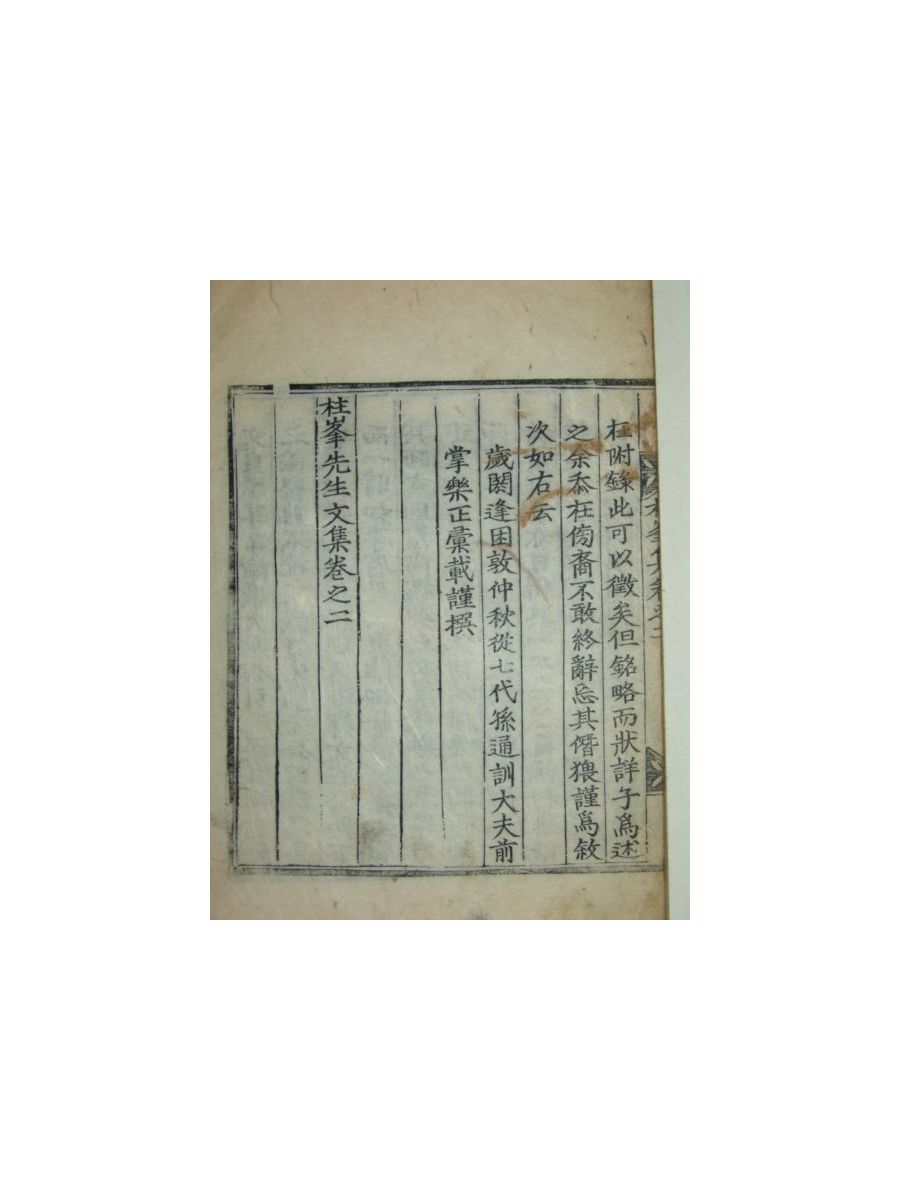 在附錄此可以徵矣但銘略而狀詳子爲述
之余忝在傍裔不敢終辭忘其僭猥謹爲敘
次如右云
歲閼逢困敦仲秋從七代孫通訓大夫前
掌樂正彙載謹撰
桂峯先生文集卷之二